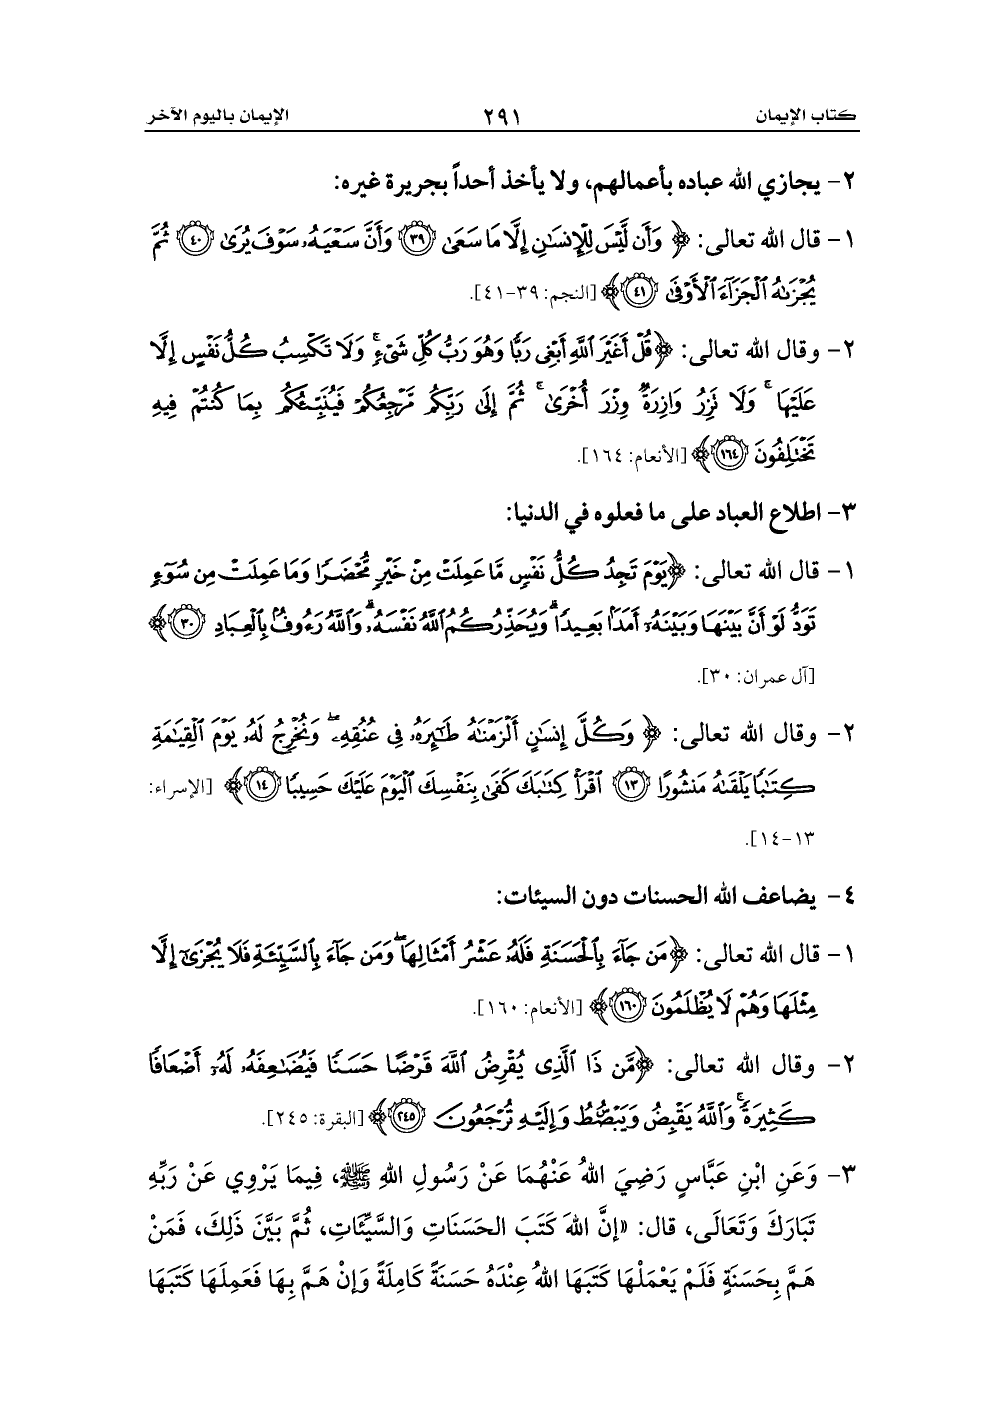 كتاب الإيمان ٢٩١ الإيمان باليوم الآخر
٢- يجازي الله عباده بأعمالهم، ولا يأخذ أحداً بجريرة غيره:
١- قال الله تعالى: ﴿ وَأَن لَّيْسَ لِلْإِنسَٰنِ إِلَّا مَا سَعَىٰ ﴿٣٩﴾ وَأَنَّ سَعْيَهُۥ سَوْفَ يُرَىٰ ﴿٤٠﴾ ثُمَّ
يُجْزَىٰهُ ٱلْجَزَآءَ ٱلْأَوْفَىٰ ﴿٤١﴾ ﴾ [النجم: ٣٩-٤١].
٢- وقال الله تعالى: ﴿ قُلْ أَغَيْرَ ٱللَّهِ أَبْغِى رَبًّا وَهُوَ رَبُّ كُلِّ شَىْءٍ ۚ وَلَا تَكْسِبُ كُلُّ نَفْسٍ إِلَّا
عَلَيْهَا ۚ وَلَا تَزِرُ وَازِرَةٌ وِزْرَ أُخْرَىٰ ۚ ثُمَّ إِلَىٰ رَبِّكُم مَّرْجِعُكُمْ فَيُنَبِّئُكُم بِمَا كُنتُمْ فِيهِ
تَخْتَلِفُونَ ﴿١٦٤﴾ ﴾ [الأنعام: ١٦٤].
٣- اطلاع العباد على ما فعلوه في الدنيا:
١- قال الله تعالى: ﴿ يَوْمَ تَجِدُ كُلُّ نَفْسٍ مَّا عَمِلَتْ مِنْ خَيْرٍ مُّحْضَرًا وَمَا عَمِلَتْ مِن سُوٓءٍ
تَوَدُّ لَوْ أَنَّ بَيْنَهَا وَبَيْنَهُۥٓ أَمَدًۢا بَعِيدًا ۗ وَيُحَذِّرُكُمُ ٱللَّهُ نَفْسَهُۥ ۗ وَٱللَّهُ رَءُوفٌۢ بِٱلْعِبَادِ ﴿٣٠﴾ ﴾
[آل عمران: ٣٠].
٢- وقال الله تعالى: ﴿ وَكُلَّ إِنسَٰنٍ أَلْزَمْنَٰهُ طَٰٓئِرَهُۥ فِى عُنُقِهِۦ ۖ وَنُخْرِجُ لَهُۥ يَوْمَ ٱلْقِيَٰمَةِ
كِتَٰبًا يَلْقَىٰهُ مَنشُورًا ﴿١٣﴾ ٱقْرَأْ كِتَٰبَكَ كَفَىٰ بِنَفْسِكَ ٱلْيَوْمَ عَلَيْكَ حَسِيبًا ﴿١٤﴾ ﴾ [الإسراء:
١٣-١٤].
٤- يضاعف الله الحسنات دون السيئات:
١- قال الله تعالى: ﴿ مَن جَآءَ بِٱلْحَسَنَةِ فَلَهُۥ عَشْرُ أَمْثَالِهَا ۖ وَمَن جَآءَ بِٱلسَّيِّئَةِ فَلَا يُجْزَىٰٓ إِلَّا
مِثْلَهَا وَهُمْ لَا يُظْلَمُونَ ﴿١٦٠﴾ ﴾ [الأنعام: ١٦٠].
٢- وقال الله تعالى: ﴿ مَّن ذَا ٱلَّذِى يُقْرِضُ ٱللَّهَ قَرْضًا حَسَنًا فَيُضَٰعِفَهُۥ لَهُۥٓ أَضْعَافًا
كَثِيرَةً ۚ وَٱللَّهُ يَقْبِضُ وَيَبْصُۜطُ وَإِلَيْهِ تُرْجَعُونَ ﴿٢٤٥﴾ ﴾ [البقرة: ٢٤٥].
٣- وَعَنِ ابْنِ عَبَّاسٍ رَضِيَ اللهُ عَنْهُمَا عَنْ رَسُولِ اللهِ ﷺ، فِيمَا يَرْوِي عَنْ رَبِّهِ
تَبَارَكَ وَتَعَالَى، قال: «إنَّ اللهَ كَتَبَ الحَسَنَاتِ وَالسَّيِّئَاتِ، ثُمَّ بَيَّنَ ذَلِكَ، فَمَنْ
هَمَّ بِحَسَنَةٍ فَلَمْ يَعْمَلْهَا كَتَبَهَا اللهُ عِنْدَهُ حَسَنَةً كَامِلَةً وَإنْ هَمَّ بِهَا فَعَمِلَهَا كَتَبَهَا